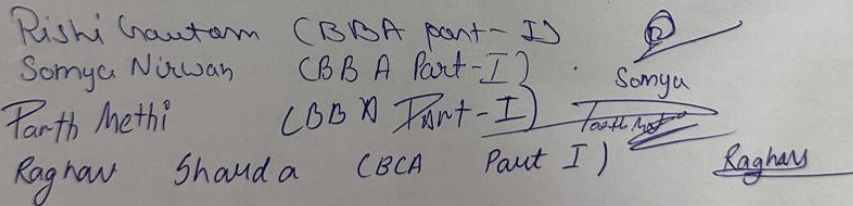 Rishi Gautam (BBA part-I)
Somya Nirwan (BBA Part-I) Somya
Parth Methi (BBA Part-I) Parth Methi
Raghav Sharda (BCA Part I) Raghav